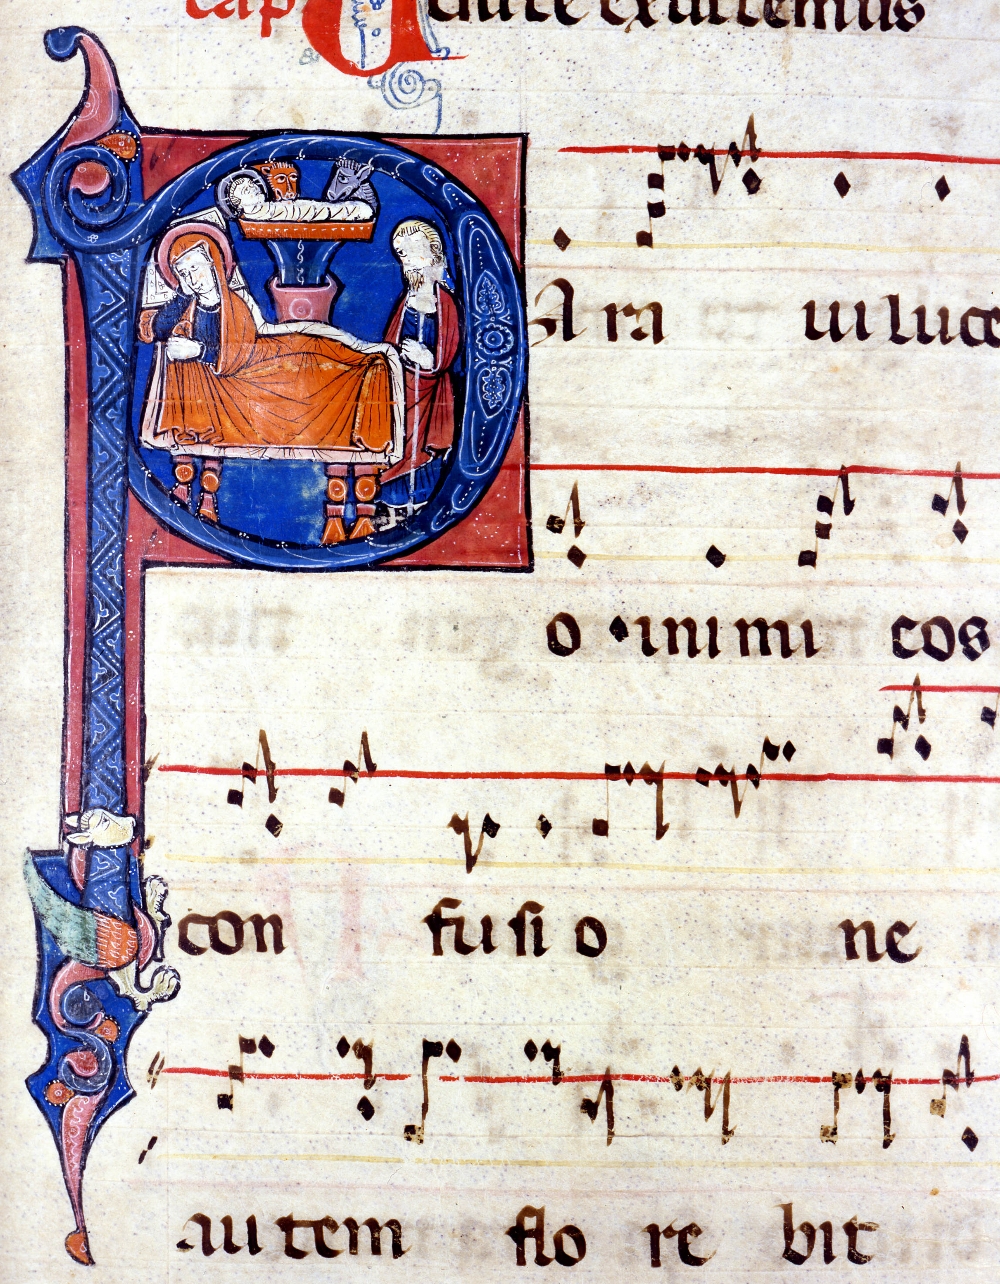 cap Uenite exultemus
PAra ui luce
o inimi cos
con fusi o ne
autem flo re bit